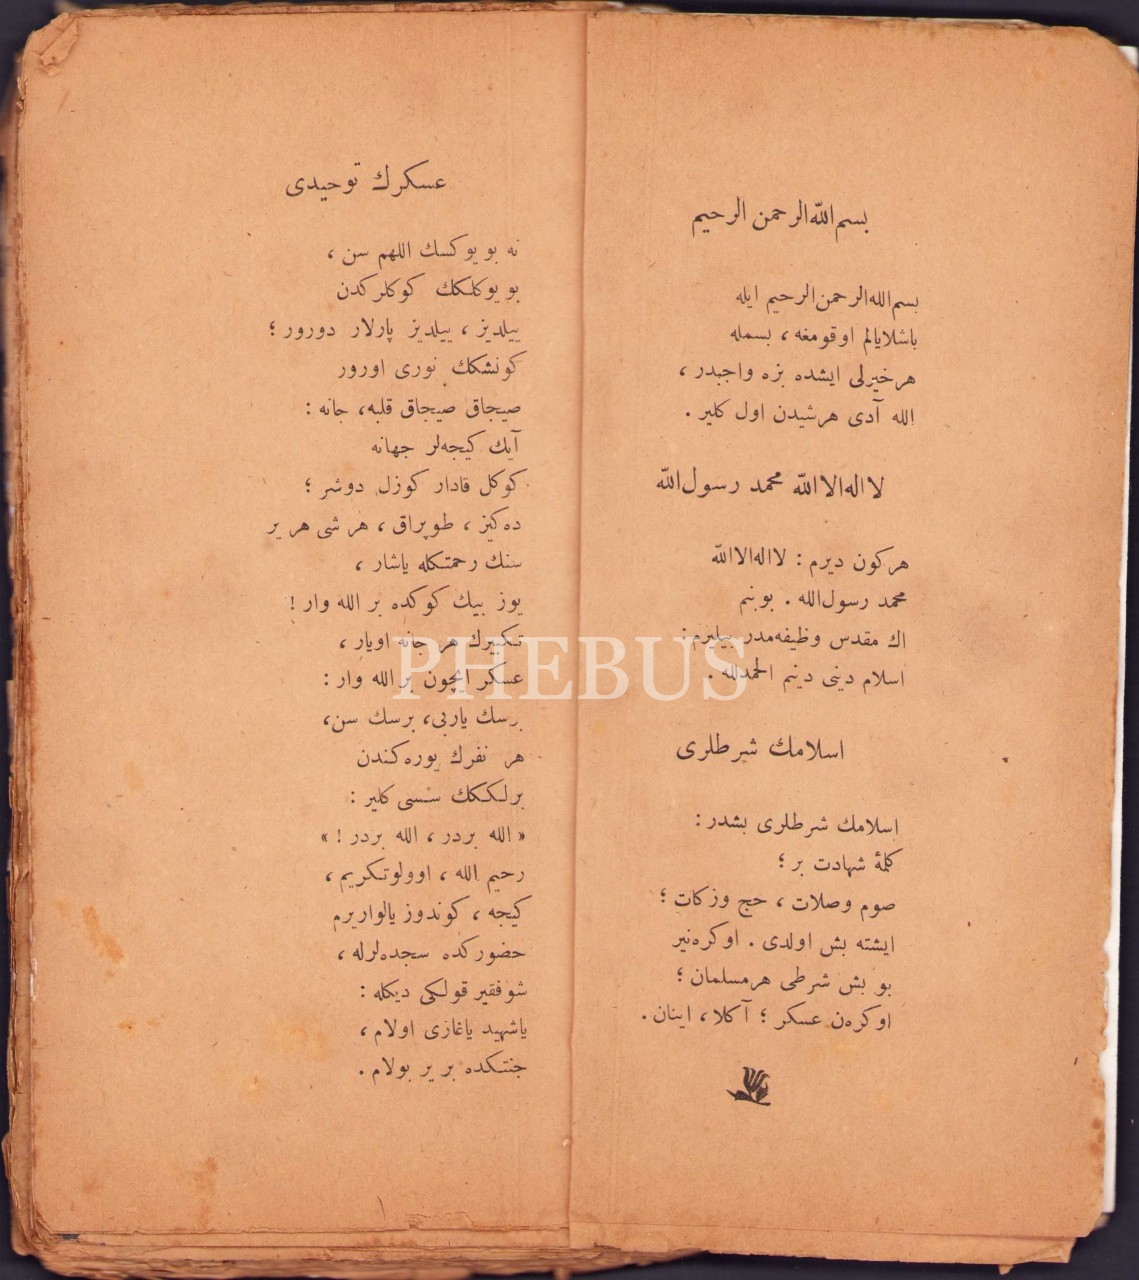 بسم الله الرحمن الرحيم
بسم الله الرحمن الرحيم ايله
باشلايالم اوقومغه ، بسمله
هر خيرلى ايشده بزه واجبدر ،
الله آدى هر شيدن اول كلير .
لا اله الا الله محمد رسول الله
هر كون ديرم : لا اله الا الله
محمد رسول الله . بو بنم
اك مقدس وظيفه‌مدر بيليرم :
اسلام دينى دينم الحمدلله .
اسلامك شرطلرى
اسلامك شرطلرى بشدر :
كلمهٔ شهادت بر ؛
صوم وصلات ، حج وزكات ؛
ايشته بش اولدى . اوكره‌نير
بو بش شرطى هر مسلمان ؛
اوكره‌ن عسكر ؛ آكلا ، اينان .
عسكرك توحيدى
نه بويوكسك اللهم سن ،
بويوكلكك كوكلركدن
ييلديز ، ييلديز پارلار دورور ؛
كونشكك نورى اورور
صيجاق صيجاق قلبه ، جانه :
آيك كيجه‌لر جهانه
كوكل قادار كوزل دوشر ؛
ده‌كيز ، طوپراق ، هر شى هر ير
سنك رحمتكله ياشار ،
يوز بيك كوكده بر الله وار !
تكبيرك هر جانه اويار ،
عسكر ايچون بر الله وار :
برسك ياربى ، برسك سن ،
هر نفرك يوره‌كندن
برلككك سسى كلير :
« الله بردر ، الله بردر ! »
رحيم الله ، اوولو تكريم ،
كيجه ، كوندوز يالواريرم
حضوركده سجده‌لرله ،
شو فقير قولكى ديكله :
يا شهيد يا غازى اولام ،
جنتكده بر ير بولام .
PHEBUS